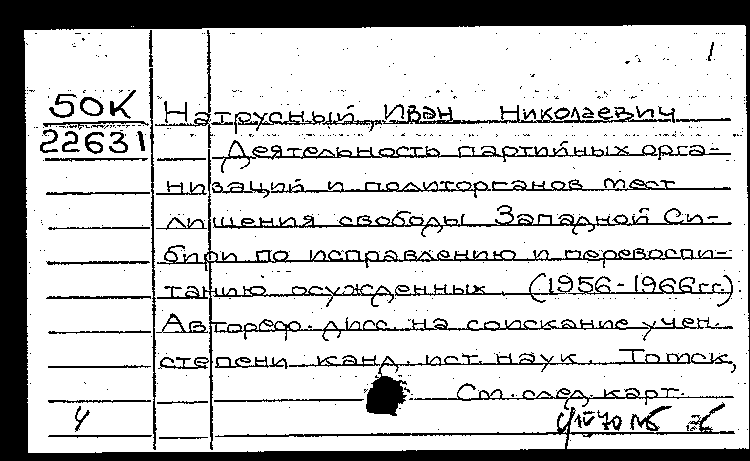 1
50К Натрусный, Иван Николаевич
22631 Деятельность партийных орга-
низаций и политорганов мест
лишения свободы Западной Си-
бири по исправлению и перевоспи-
танию осужденных. (1956-1966гг.)
Автореф. дисс. на соискание учен.
степени канд. ист. наук. Томск,
См. след. карт.